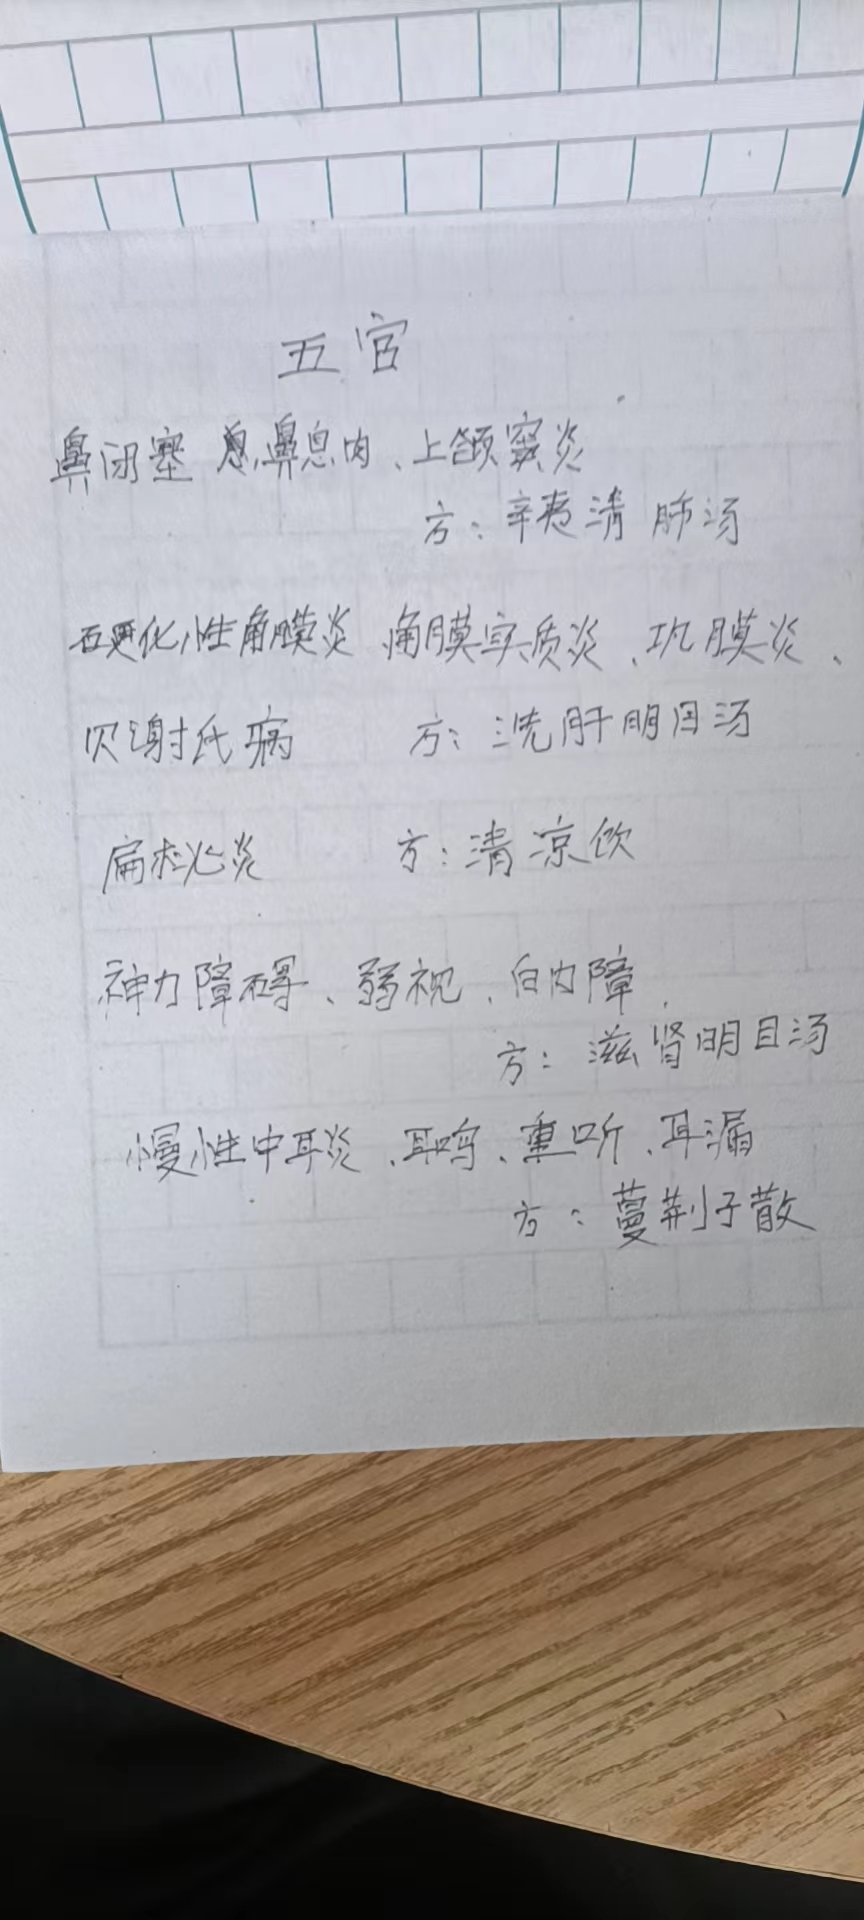 五官
鼻闭塞 鼻息肉、上颌窦炎
方：辛夷清肺汤
硬化性角膜炎 角膜实质炎、巩膜炎、
贝谢氏病 方：洗肝明目汤
扁桃炎 方：清凉饮
神力障碍、弱视、白内障
方：滋肾明目汤
慢性中耳炎、耳鸣、重听、耳漏
方：蔓荆子散